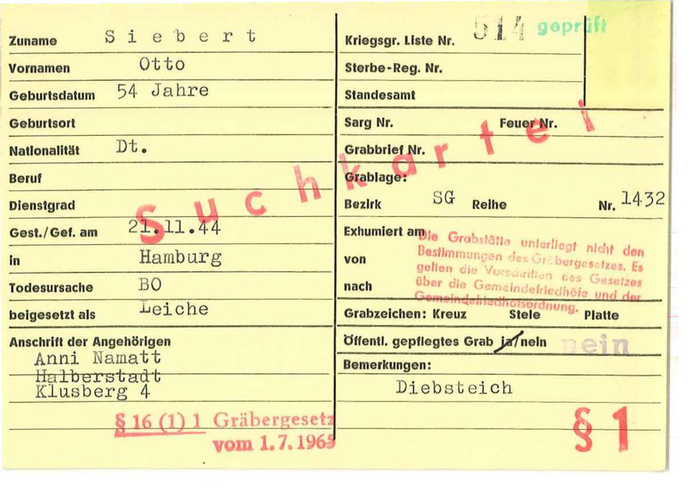 Zuname Siebert
Vornamen Otto
Geburtsdatum 54 Jahre
Geburtsort
Nationalität Dt.
Beruf
Dienstgrad
Gest./Gef. am 21.11.44
in Hamburg
Todesursache BO
beigesetzt als Leiche
Anschrift der Angehörigen
Anni Namatt
Halberstadt
Klusberg 4
§ 16 (1) 1 Gräbergesetz
vom 1.7.1965
Suchkartei
Kriegsgr. Liste Nr. 514 geprüft
Sterbe-Reg. Nr.
Standesamt
Sarg Nr. Feuer Nr.
Grabbrief Nr.
Grablage:
Bezirk SG Reihe Nr. 1432
Exhumiert am
von
nach
Die Grabstätte unterliegt nicht den
Bestimmungen des Gräbergesetzes. Es
gelten die Vorschriften des Gesetzes
über die Gemeindefriedhöfe und der
Gemeindefriedhofsordnung.
Grabzeichen: Kreuz Stele Platte
Öffentl. gepflegtes Grab ja/nein nein
Bemerkungen:
Diebsteich
§ 1